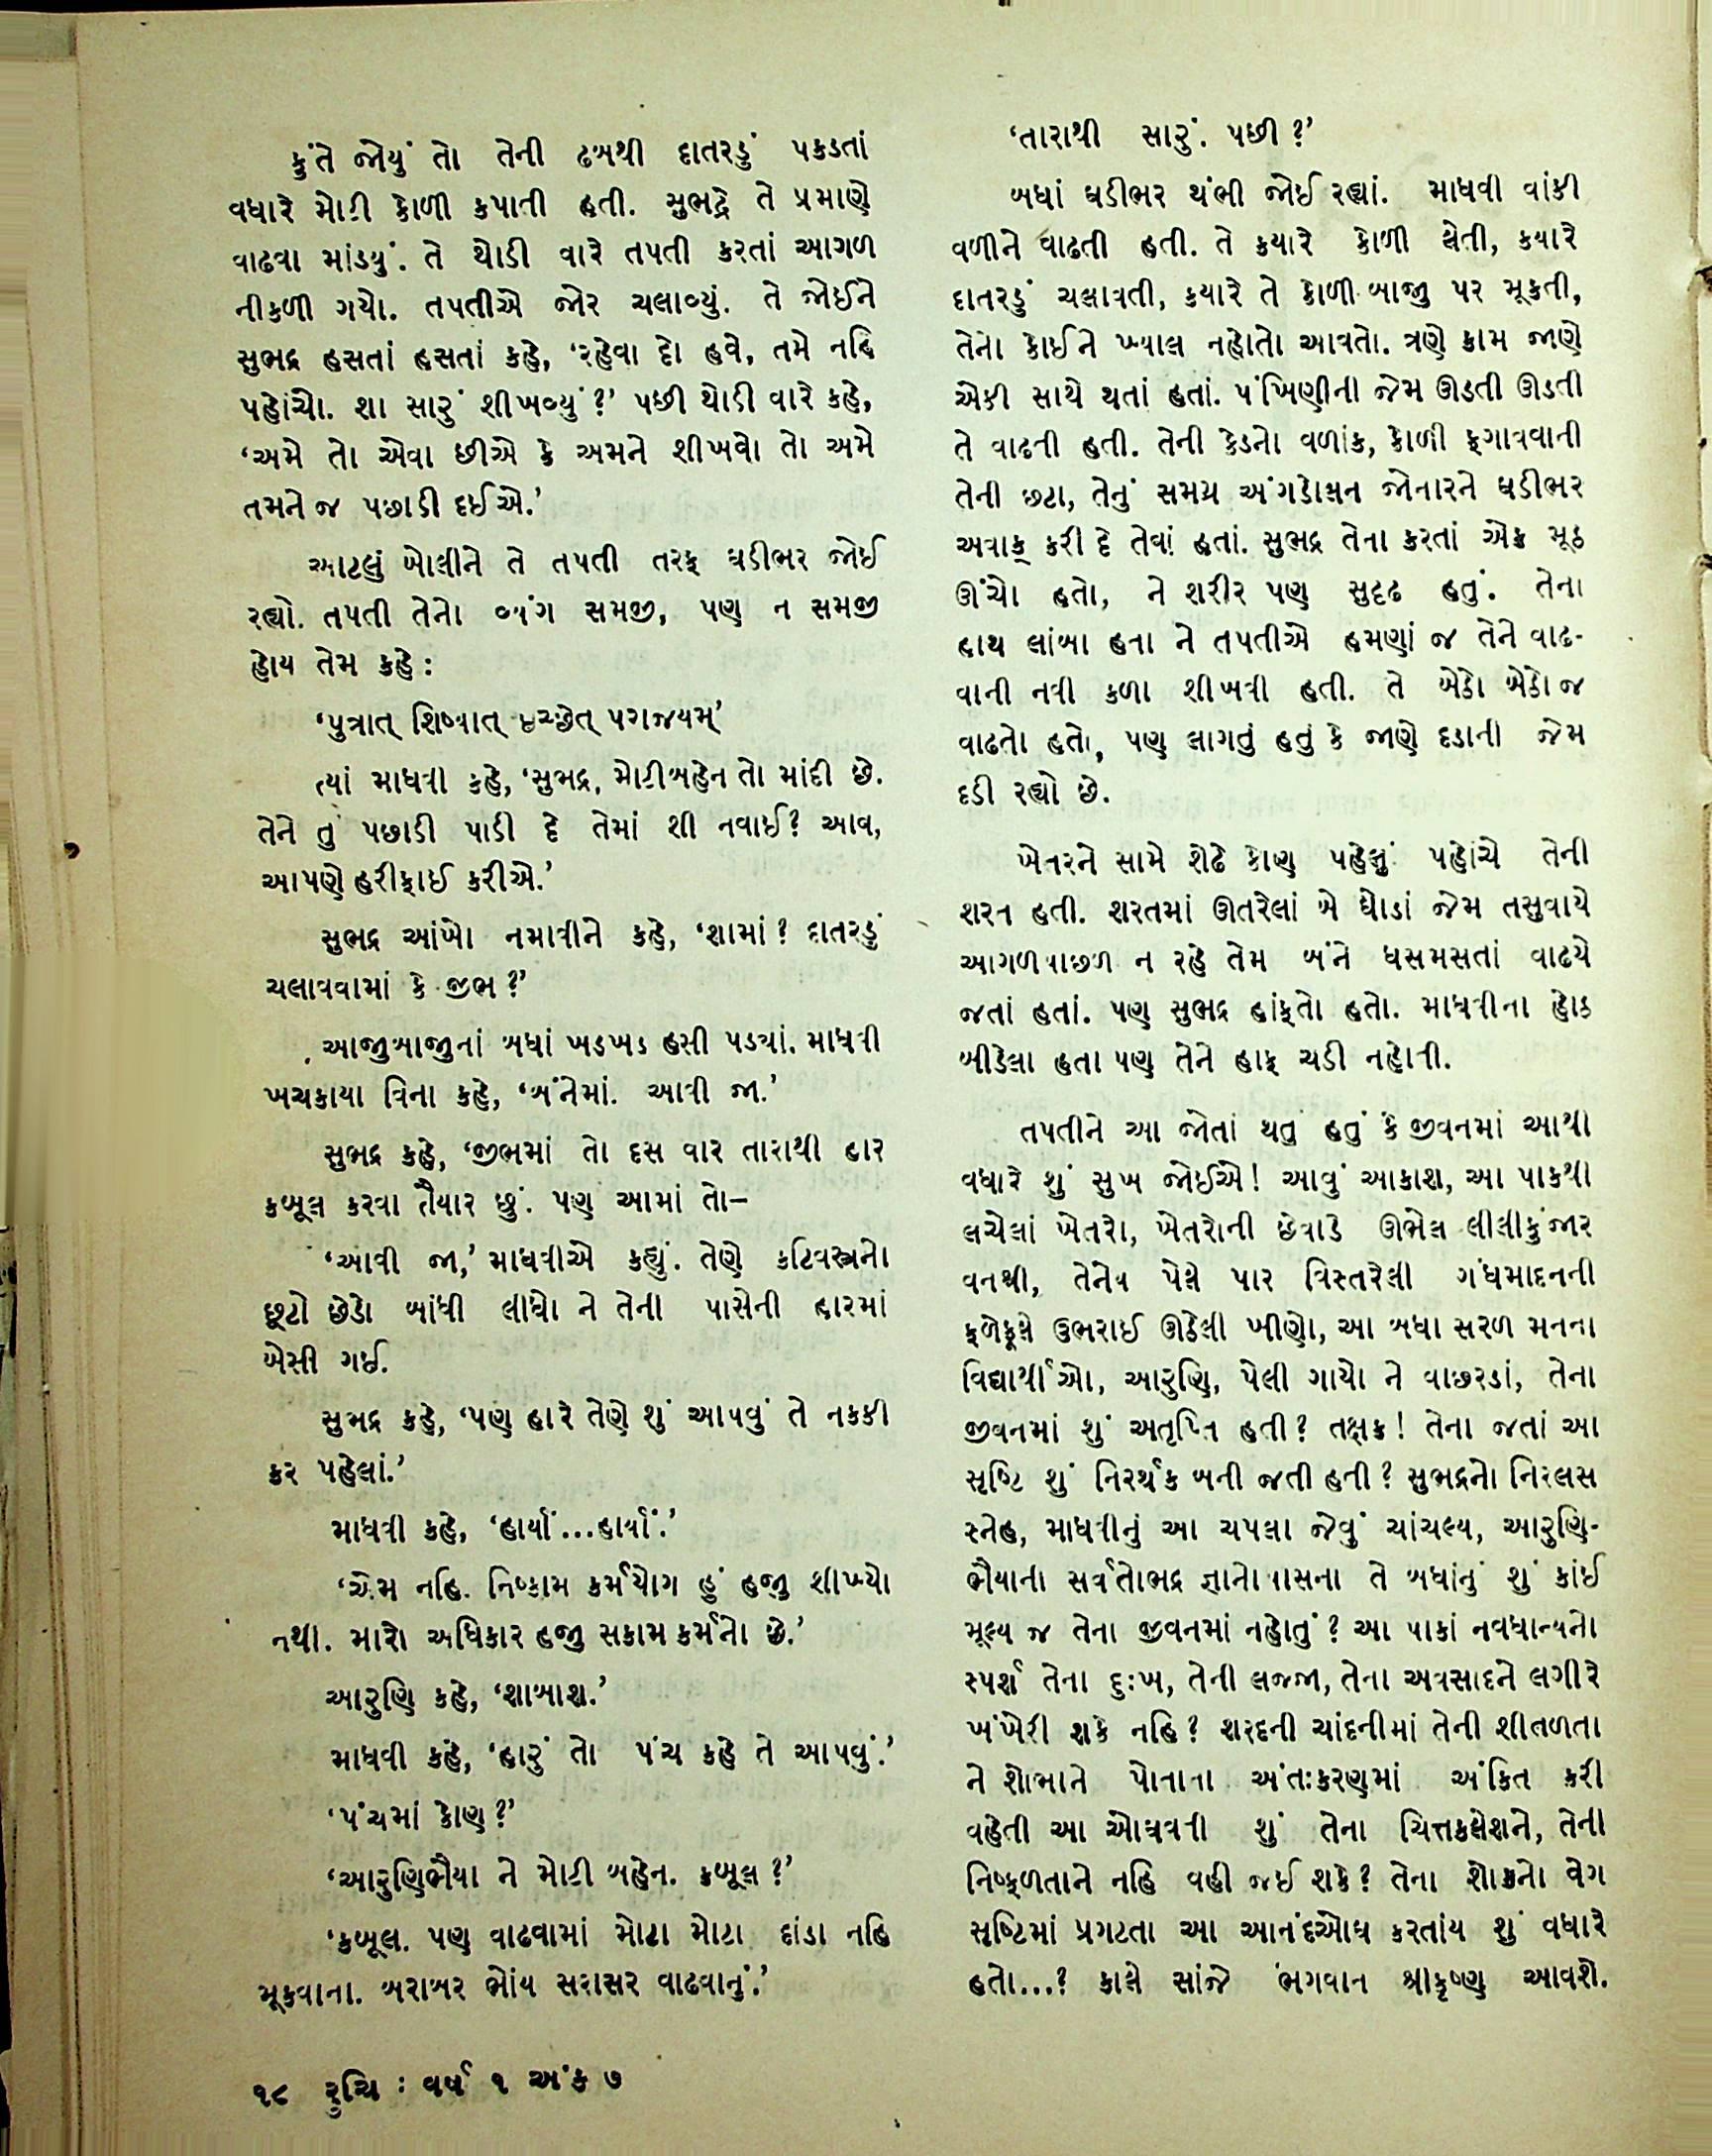 કુંતે જોયું તો તેની ઢબથી દાતરડું પકડતાં
વધારે મોટી કોળી કપાતી હતી. સુભદ્રે તે પ્રમાણે
વાઢવા માંડયું. તે થોડી વારે તપતી કરતાં આગળ
નીકળી ગયો. તપતીએ જોર ચલાવ્યું. તે જોઈને
સુભદ્ર હસતાં હસતાં કહે, ‘રહેવા દો હવે, તમે નહિ
પહોંચો. શા સારું શીખવ્યું?’ પછી થોડી વારે કહે,
‘અમે તો એવા છીએ કે અમને શીખવો તો અમે
તમને જ પછાડી દઈએ.’
આટલું બોલીને તે તપતી તરફ ઘડીભર જોઈ
રહ્યો. તપતી તેનો વ્યંગ સમજી, પણ ન સમજી
હોય તેમ કહે :
‘પુત્રાત્ શિષ્યાત્ ઇચ્છેત્ પરાજયમ્’
ત્યાં માધવી કહે, ‘સુભદ્ર, મોટીબહેન તો માંદી છે.
તેને તું પછાડી પાડી દે તેમાં શી નવાઈ? આવ,
આપણે હરીફાઈ કરીએ.’
સુભદ્ર આંખો નમાવીને કહે, ‘શામાં? દાતરડું
ચલાવવામાં કે જીભ?’
આજુબાજુનાં બધાં ખડખડ હસી પડયાં. માધવી
ખચકાયા વિના કહે, ‘બંનેમાં. આવી જા.’
સુભદ્ર કહે, ‘જીભમાં તો દસ વાર તારાથી હાર
કબૂલ કરવા તૈયાર છું. પણ આમાં તો–
‘આવી જા,’ માધવીએ કહ્યું. તેણે કટિવસ્ત્રનો
છૂટો છેડો બાંધી લીધો ને તેની પાસેની હારમાં
બેસી ગઈ.
સુભદ્ર કહે, ‘પણ હારે તેણે શું આપવું તે નકકી
કર પહેલાં.’
માધવી કહે, ‘હાર્યાં...હાર્યાં.’
‘એમ નહિ. નિષ્કામ કર્મયોગ હું હજુ શીખ્યો
નથી. મારો અધિકાર હજી સકામ કર્મનો છે.’
આરુણિ કહે, ‘શાબાશ.’
માધવી કહે, ‘હારું તો પંચ કહે તે આપવું.’
‘પંચમાં કોણ?’
‘આરુણિભૈયા ને મોટી બહેન. કબૂલ?’
‘કબૂલ. પણ વાઢવામાં મોટા મોટા દાંડા નહિ
મૂકવાના. બરાબર ભોંય સરાસર વાઢવાનું.’
‘તારાથી સારું. પછી?’
બધાં ઘડીભર થંભી જોઈ રહ્યાં. માધવી વાંકી
વળીને વાઢતી હતી. તે કયારે કોળી લેતી, કયારે
દાતરડું ચલાવતી, કયારે તે કોળી બાજુ પર મૂકતી,
તેનો કોઈને ખ્યાલ નહોતો આવતો. ત્રણે કામ જાણે
એકી સાથે થતાં હતાં. પંખિણીની જેમ ઊડતી ઊડતી
તે વાઢતી હતી. તેની કેડનો વળાંક, કોળી ફગાવવાની
તેની છટા, તેનું સમગ્ર અંગડોલન જોનારને ઘડીભર
અવાક્ કરી દે તેવાં હતાં. સુભદ્ર તેના કરતાં એક મૂઠ
ઊંચો હતો, ને શરીર પણ સુદૃઢ હતું. તેના
હાથ લાંબા હતા ને તપતીએ હમણાં જ તેને વાઢ-
વાની નવી કળા શીખવી હતી. તે બેઠો બેઠો જ
વાઢતો હતો, પણ લાગતું હતું કે જાણે દડાની જેમ
દડી રહ્યો છે.
ખેતરને સામે શેઢે કોણ પહેલું પહોંચે તેની
શરત હતી. શરતમાં ઊતરેલાં બે ઘોડાં જેમ તસુવાયે
આગળપાછળ ન રહે તેમ બંને ધસમસતાં વાઢયે
જતાં હતાં. પણ સુભદ્ર હાંફતો હતો. માધવીના હોઠ
બીડેલા હતા પણ તેને હાફ ચડી નહોતી.
તપતીને આ જોતાં થતું હતું કે જીવનમાં આથી
વધારે શું સુખ જોઈએ! આવું આકાશ, આ પાકથી
લચેલાં ખેતરો, ખેતરોની છેવાડે ઊભેલ લીલીકુંજાર
વનશ્રી, તેનેય પેલે પાર વિસ્તરેલી ગંધમાદનની
ફળેફૂલે ઉભરાઈ ઊઠેલી ખીણો, આ બધા સરળ મનના
વિદ્યાર્થીઓ, આરુણિ, પેલી ગાયો ને વાછરડાં, તેના
જીવનમાં શું અતૃપ્તિ હતી? તક્ષક! તેના જતાં આ
સૃષ્ટિ શું નિરર્થક બની જતી હતી? સુભદ્રનો નિરલસ
સ્નેહ, માધવીનું આ ચપલા જેવું ચાંચલ્ય, આરુણિ-
ભૈયાની સર્વતોભદ્ર જ્ઞાનોપાસના તે બધાંનું શું કાંઈ
મૂલ્ય જ તેના જીવનમાં નહોતું? આ પાકાં નવધાન્યનો
સ્પર્શ તેના દુઃખ, તેની લજ્જા, તેના અવસાદને લગીરે
ખંખેરી શકે નહિ? શરદની ચાંદનીમાં તેની શીતળતા
ને શોભાને પોતાના અંતઃકરણમાં અંકિત કરી
વહેતી આ ઓઘવતી શું તેના ચિત્તકલેશને, તેની
નિષ્ફળતાને નહિ વહી જઈ શકે? તેના શોકનો વેગ
સૃષ્ટિમાં પ્રગટતા આ આનંદઓઘ કરતાંય શું વધારે
હતો...? કાલે સાંજે ભગવાન શ્રીકૃષ્ણ આવશે.
૧૮ રુચિ : વર્ષ ૧ અંક ૭